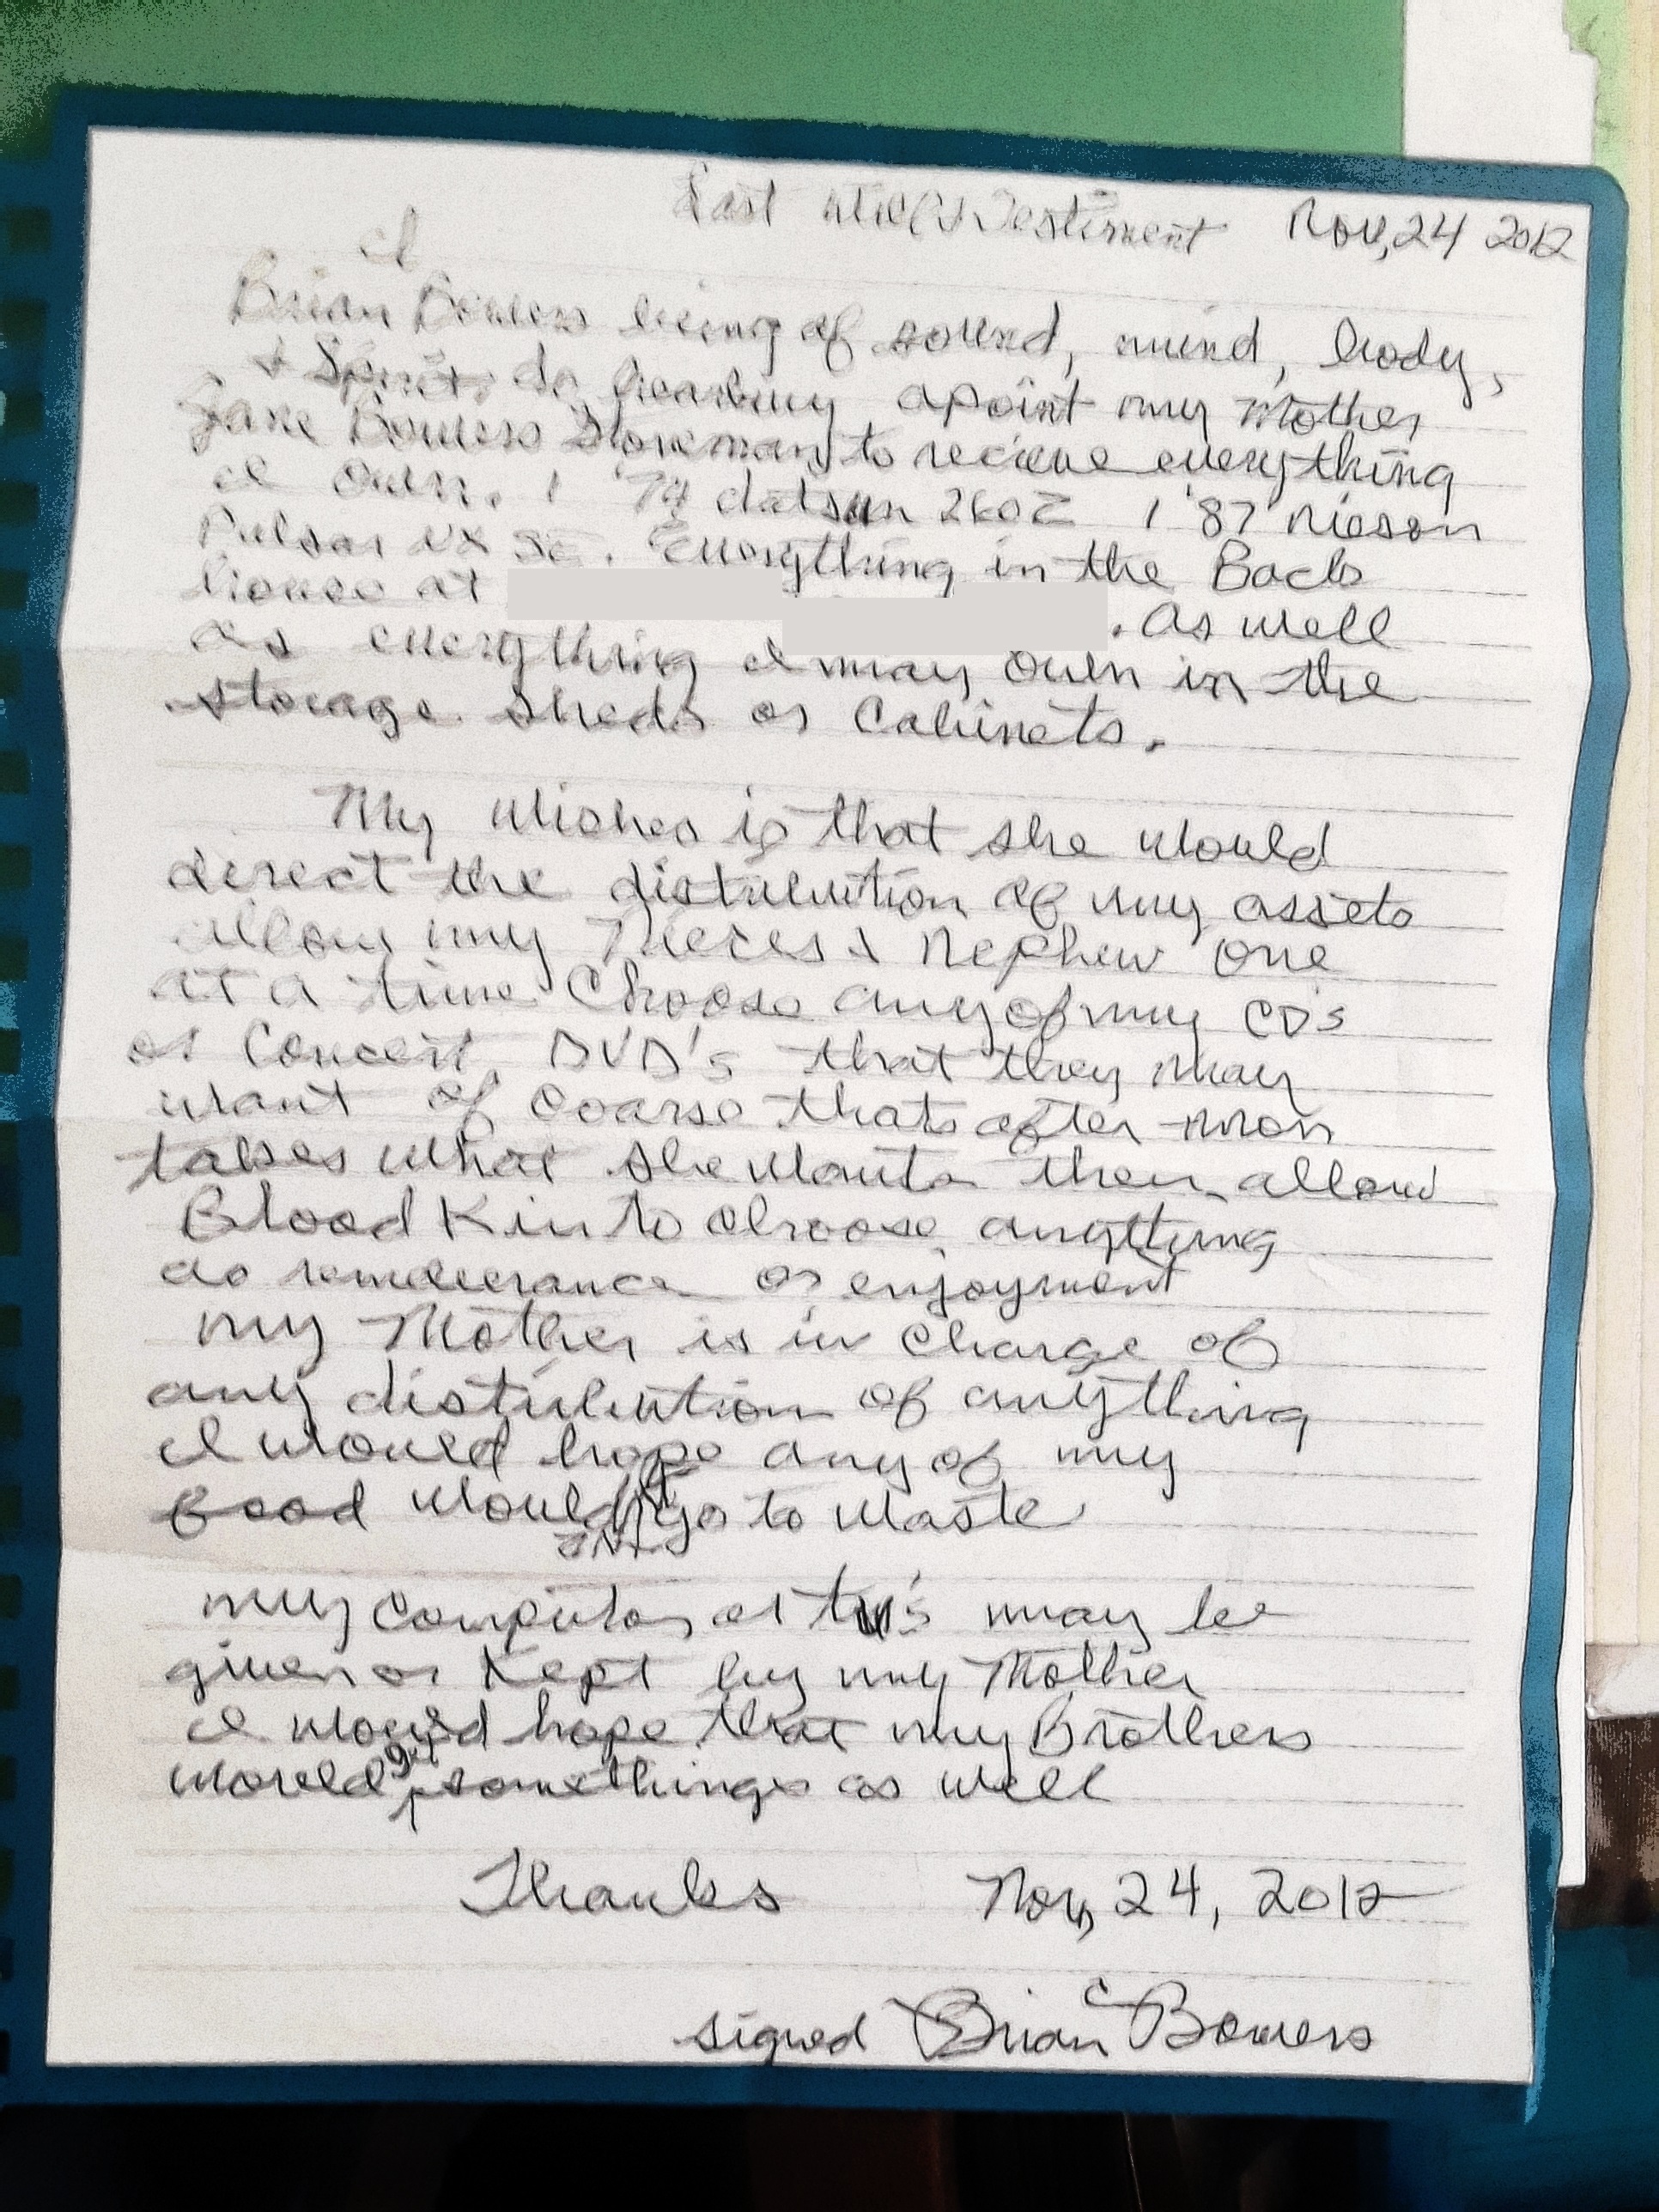 Last Will & Testiment Nov, 24 2012
I
Brian Bowers being of sound, mind, body,
& Spirit do hearbuy apoint my Mother
Jane Bowers Stoneman to recieve everything
I own. 1 '74 datsun 260Z 1 '87 Nissan
Pulsar NX SE. Everything in the Back
house at
. As well
as everything I may own in the
storage sheds or Cabinets.
My Wishes is that she would
direct the distribution of my assets
allow my Nieces & Nephew one
at a time Choose any of my CD's
or Concert DVD's that they may
want of Coarse thats after mom
takes what she wants then allow
Blood Kin to choose anything
as rememberance or enjoyment
my Mother is in Charge of
any distribution of anything
I would hope any of my
food would go to waste
my Computer or tv's may be
given or Kept by my Mother
I would hope that my Brothers
would get somethings as well
Thanks Nov, 24, 2012
signed Brian C Bowers